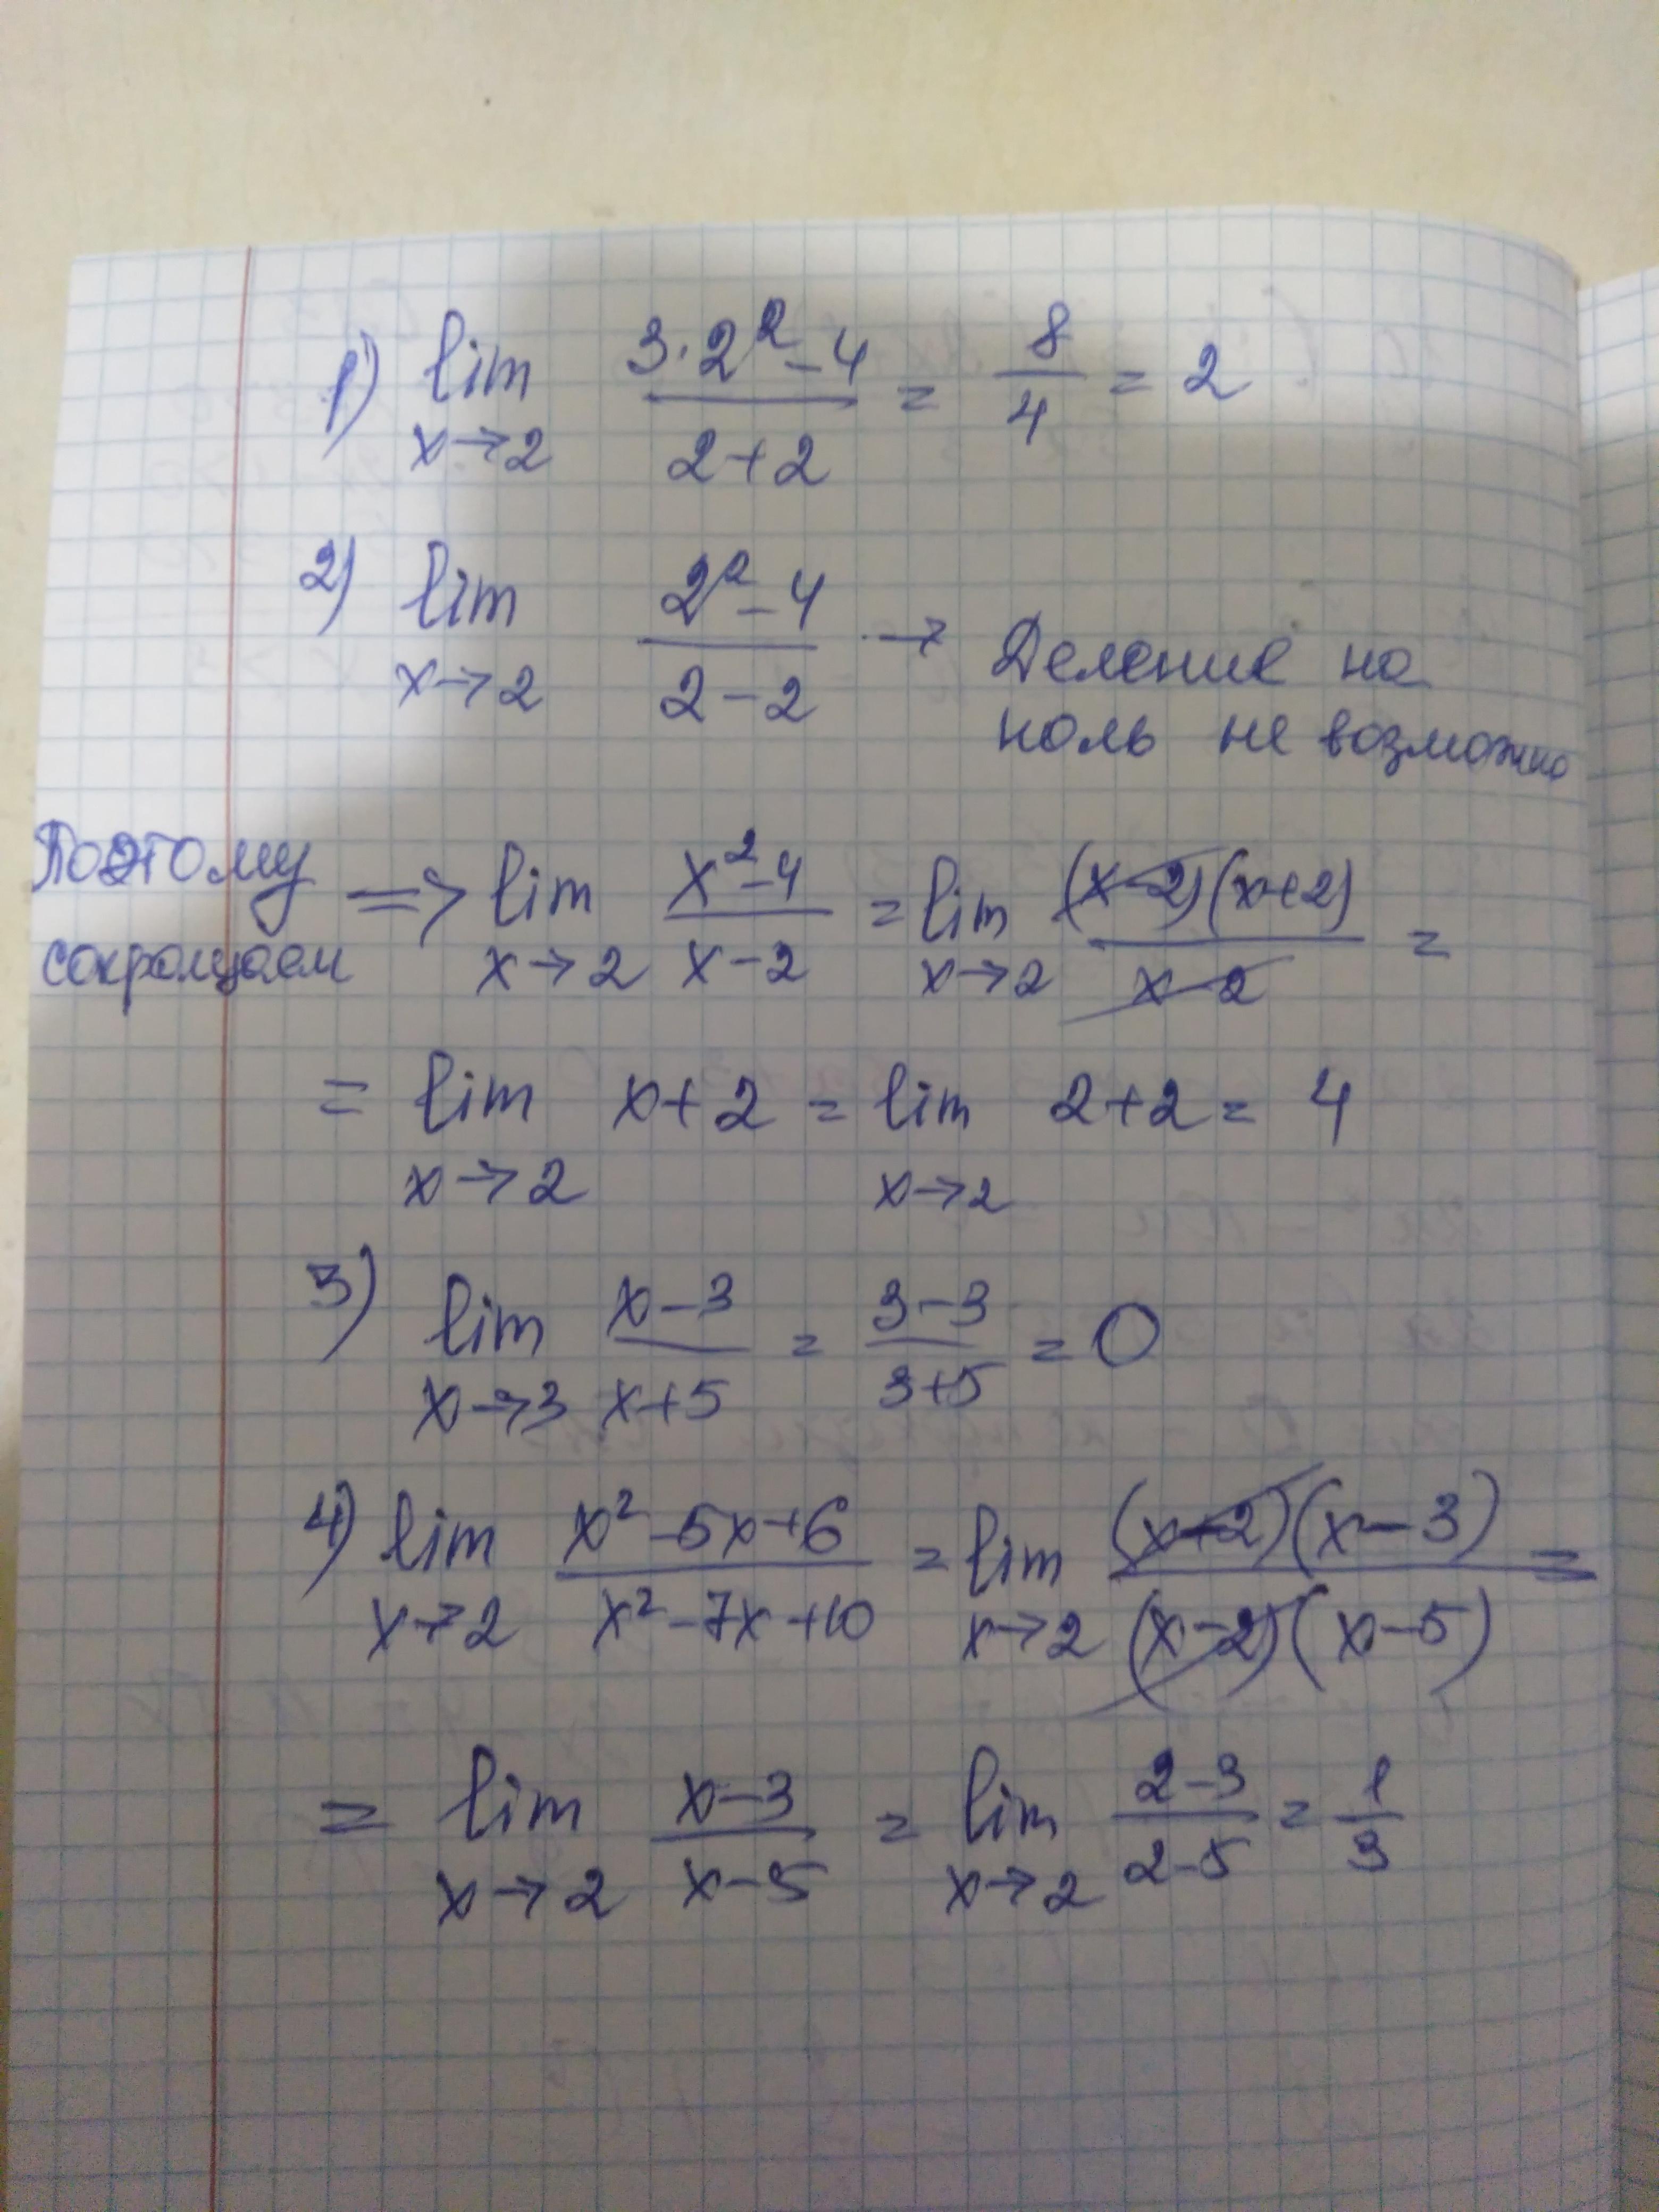 1) lim x→2 (3·2² - 4)/(2+2) = 8/4 = 2
2) lim x→2 (2² - 4)/(2-2) → Деление на
ноль не возможно
Поэтому
сокращаем => lim x→2 (x² - 4)/(x-2) = lim x→2 ((x-2)(x+2))/(x-2) =
= lim x→2 x+2 = lim x→2 2+2 = 4
3) lim x→3 (x-3)/(x+5) = (3-3)/(3+5) = 0
4) lim x→2 (x² - 5x + 6)/(x² - 7x + 10) = lim x→2 ((x-2)(x-3))/((x-2)(x-5)) =
= lim x→2 (x-3)/(x-5) = lim x→2 (2-3)/(2-5) = 1/3